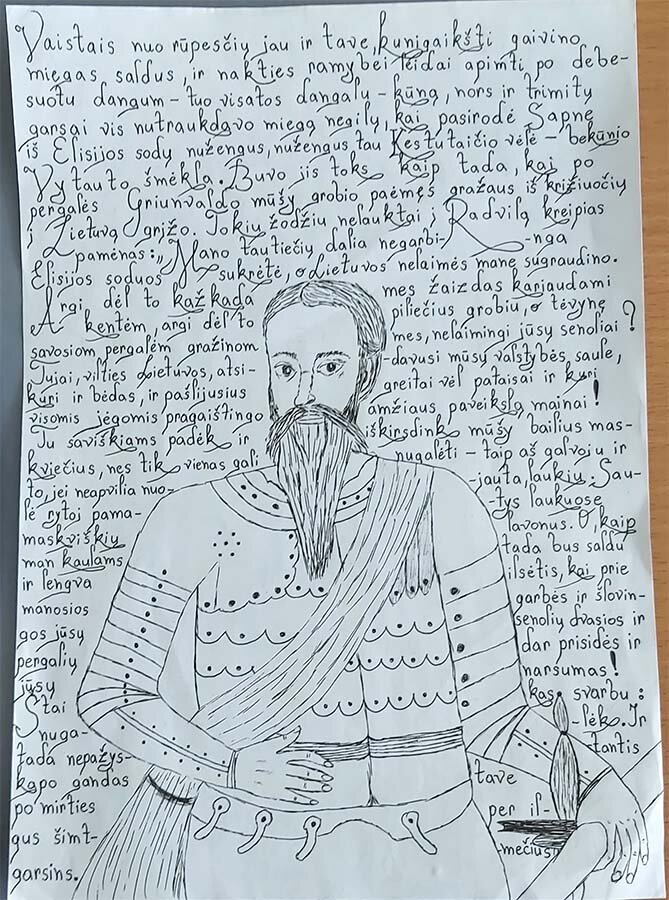 Vaistais nuo rūpesčių jau ir tave, kunigaikšti gaivino
miegas saldus, ir nakties ramybei leidai apimti po debe-
suotu dangum – tuo visatos dangalu – kūną, nors ir trimitų
garsai vis nutraukdavo miegą negilų, kai pasirodė Sapne
iš Elisijos sodų nužengus, nužengus tau Kęstutaičio vėlė – bekūnio
Vytauto šmėkla. Buvo jis toks kaip tada, kai po
pergalės Griunvaldo mūšy grobio paėmęs gražaus iš križiuočių
į Lietuvą grįžo. Tokių žodžių nelauktai į Radvilą kreipias
pamėnas: „Mano tautiečių dalia negarbi- -nga
Elisijos soduos sukrėtė, o Lietuvos nelaimės mane sugraudino.
Argi dėl to kažkada mes žaizdas kariaudami
kentėm, argi dėl to piliečius grobiu, o tėvynę
savosiom pergalėm gražinom mes, nelaimingi jūsų senoliai?
Tujai, vilties Lietuvos, atsi- -davusi mūsų valstybės saule,
kūri ir bėdas, ir pašlijusius greitai vėl pataisai ir kurį
visomis jėgomis pragaištingo amžiaus paveikslą mainai!
Tu saviškiams padėk ir iškirsdink mūšy bailius mas-
kviečius, nes tik vienas gali nugalėti – taip aš galvoju ir
to, jei neapvilia nuo- -jauta, laukiu. Sau-
lė rytoj pama- -tys laukuose
maskviškių lavonus. O, kaip
man kaulams tada bus saldu
ir lengva ilsėtis, kai prie
manosios garbės ir šlovin-
gos jūsų senolių dvasios ir
pergalių dar prisidės ir
jūsų narsumas!
Štai kas svarbu:
nuga- -lėko. Ir
tada nepažys- -tantis
kapo gandas tave
po mirties per il-
gus šimt- -mečius
garsins.